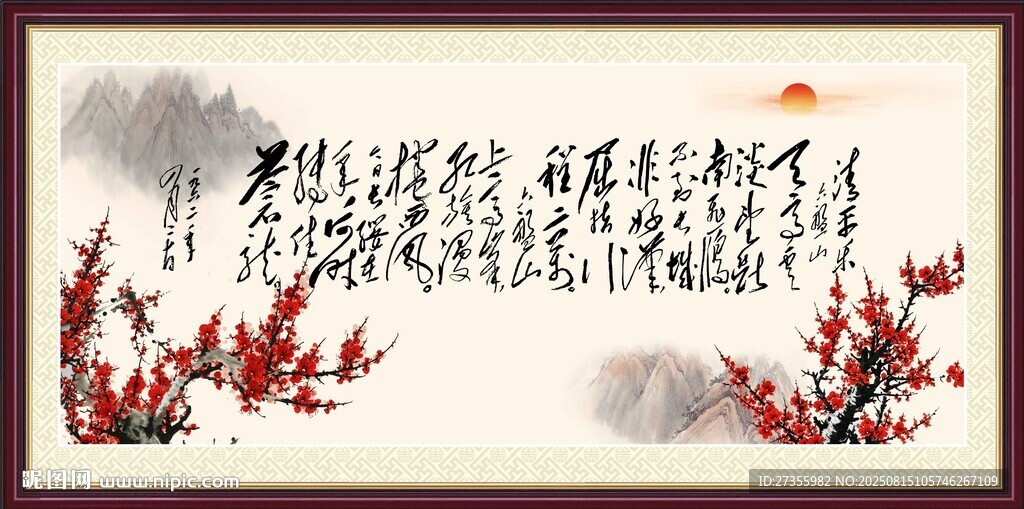 清平乐
六盘山
天高云
淡望断
南飞雁。
不到长城
非好汉,
屈指行
程二万。
六盘山
上高峰,
红旗漫
卷西风。
今日长缨在
手,何时
缚住
苍龙。
一九六二年
四月二十日
昵图网 www.nipic.com
ID:27355982 NO:20250815105746267109